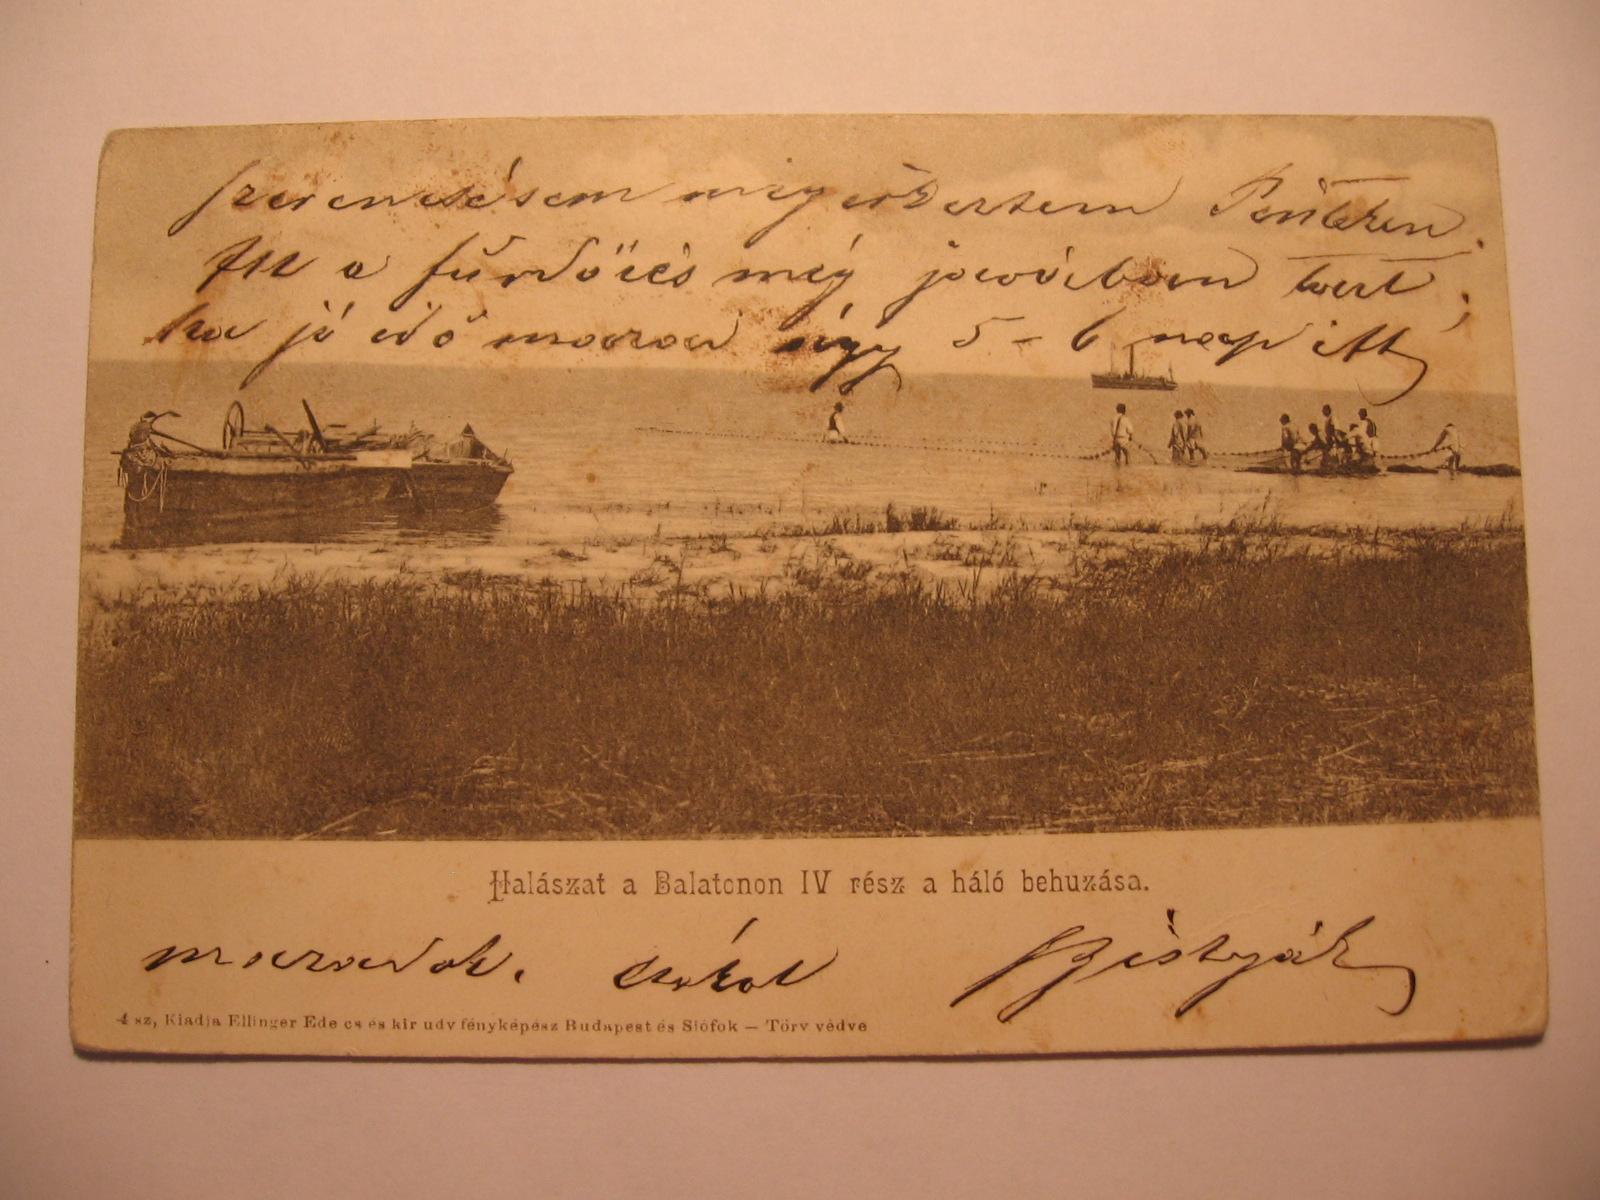 szerencsésen meg érkeztem Pénteken.
Itt a fürdőzés még javában tart;
ha jó idő marad úgy 5-6 nap itt
Halászat a Balatonon IV rész a háló behuzása.
maradok. csókol
4 sz, Kiadja Ellinger Ede cs és kir udv fényképész Budapest és Siófok — Törv védve